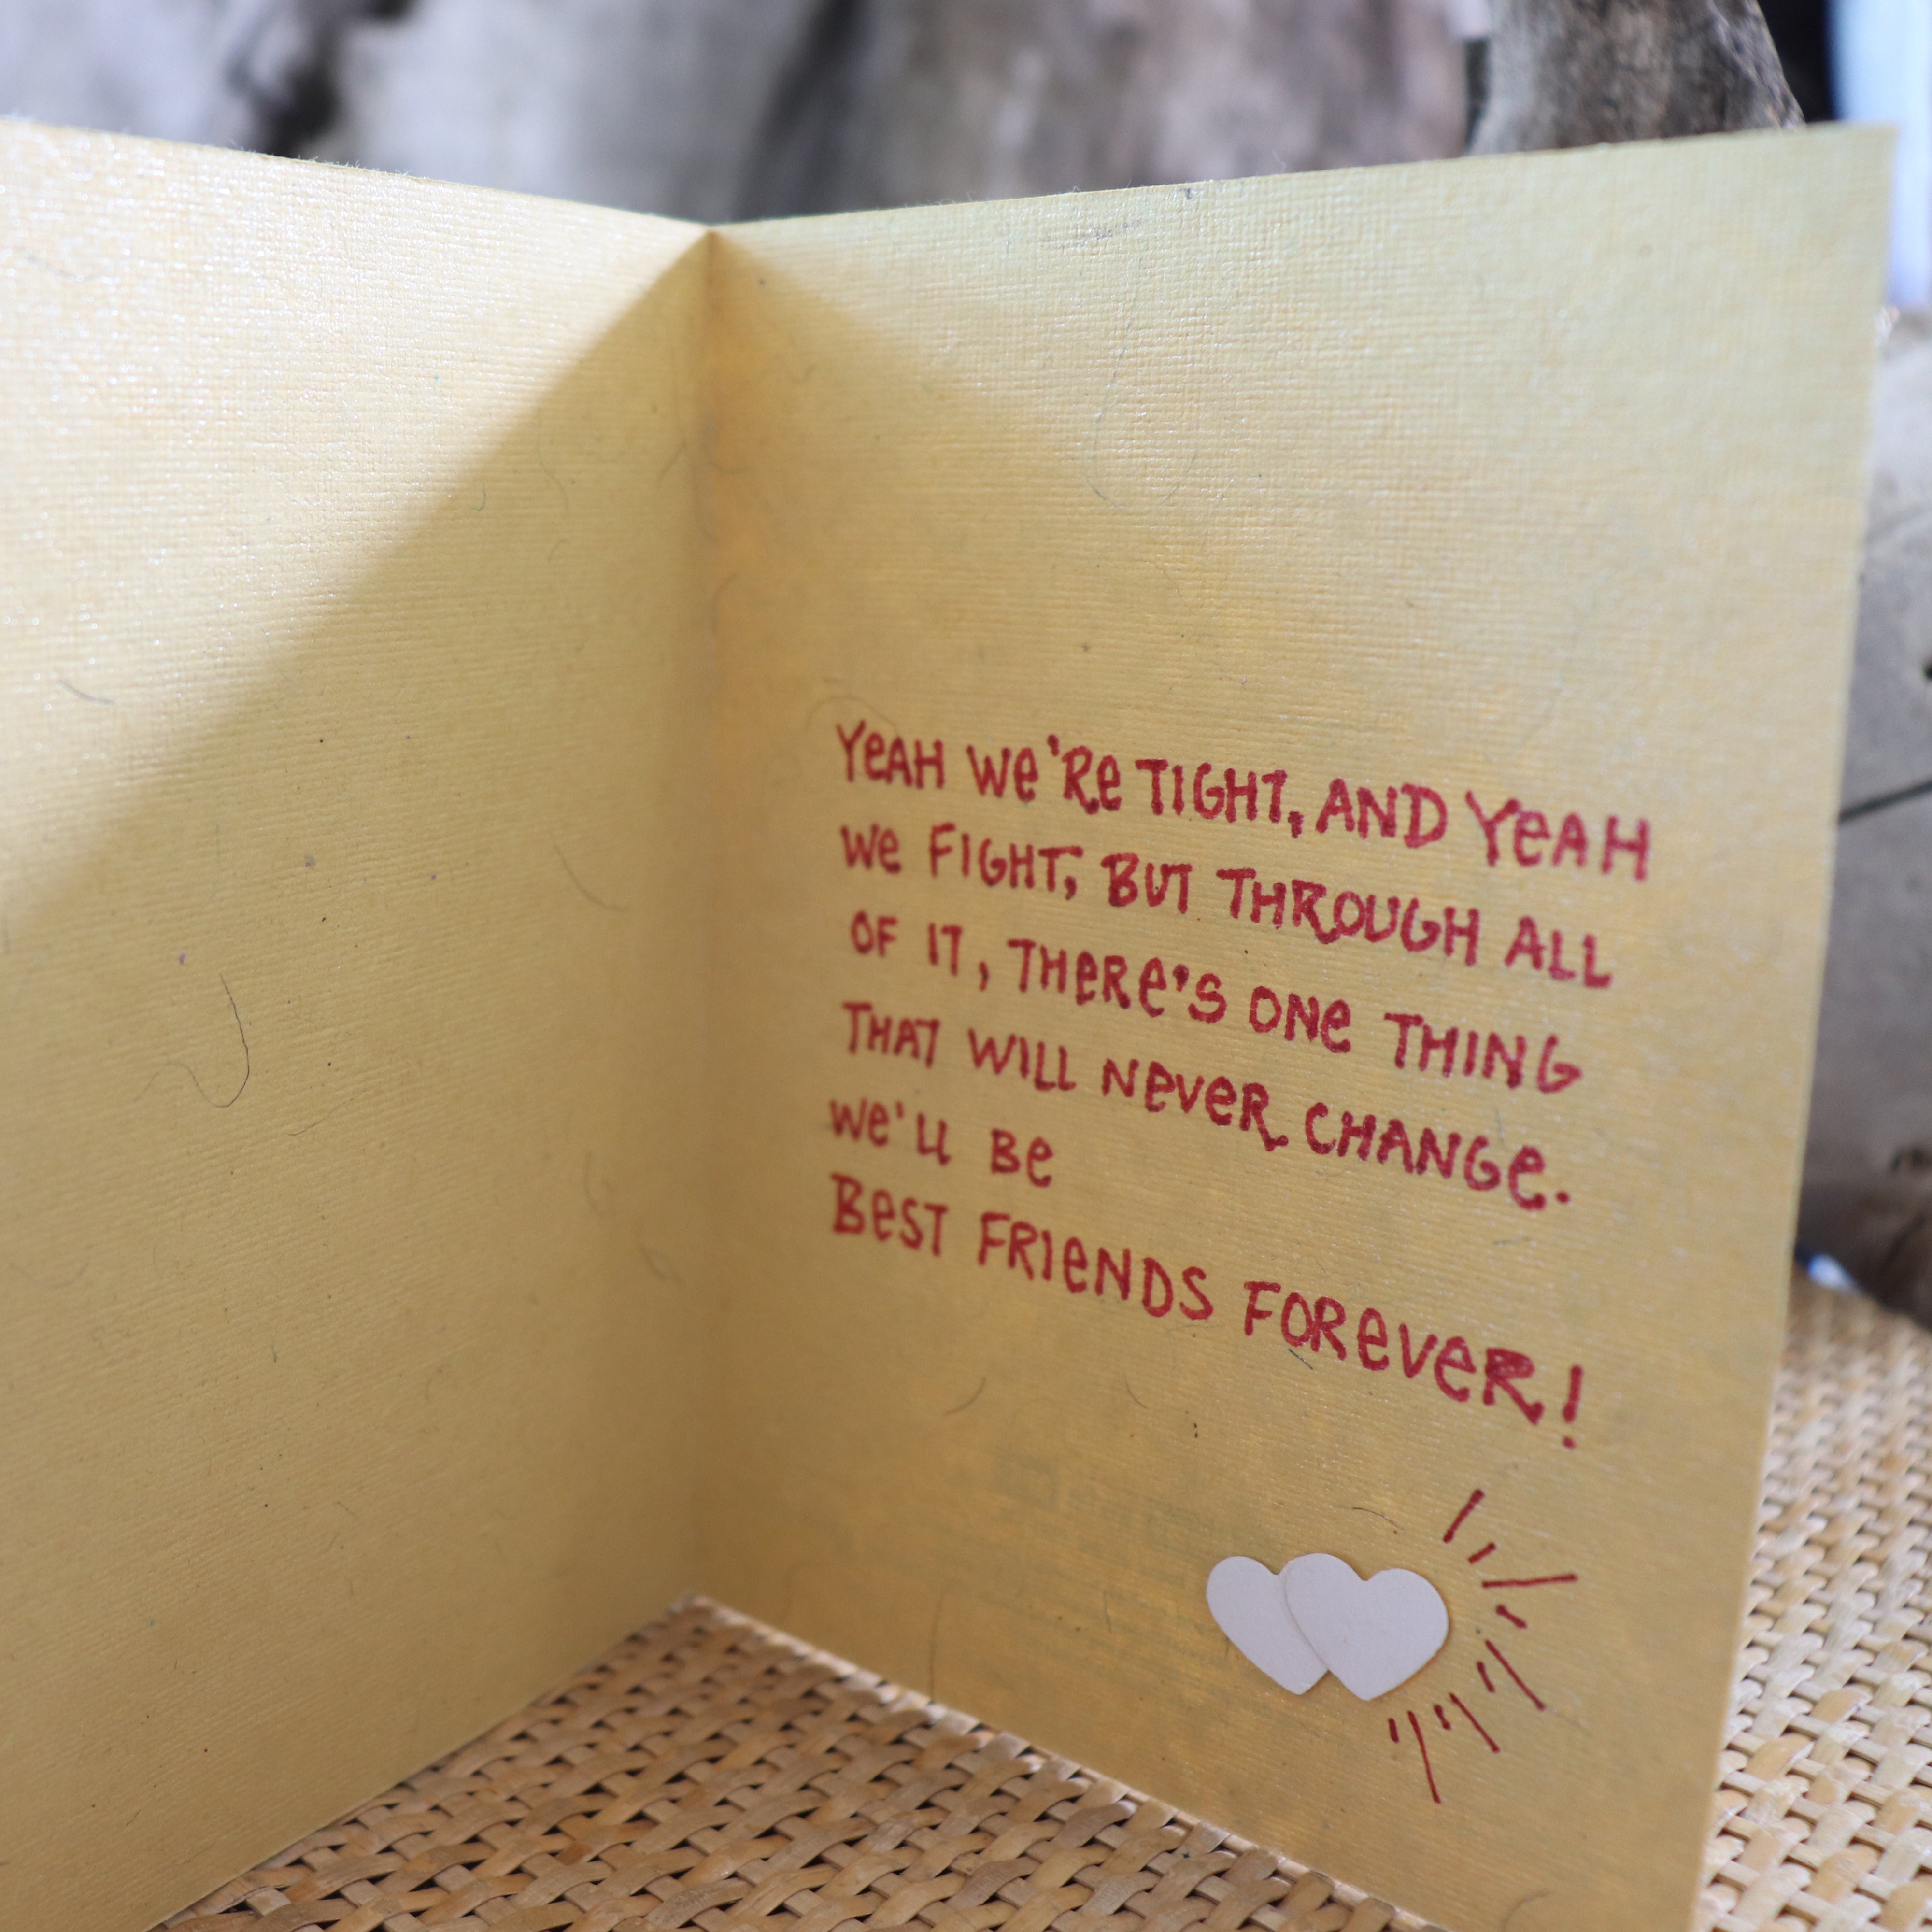 YeAH We'Re TIGHT, AND YeAH
We FIGHT, BUT THROUGH ALL
OF IT, THeRe'S ONe THING
THAT WILL NeVeR CHANGe.
We'LL Be
BeST FRIeNDS FOReVeR!